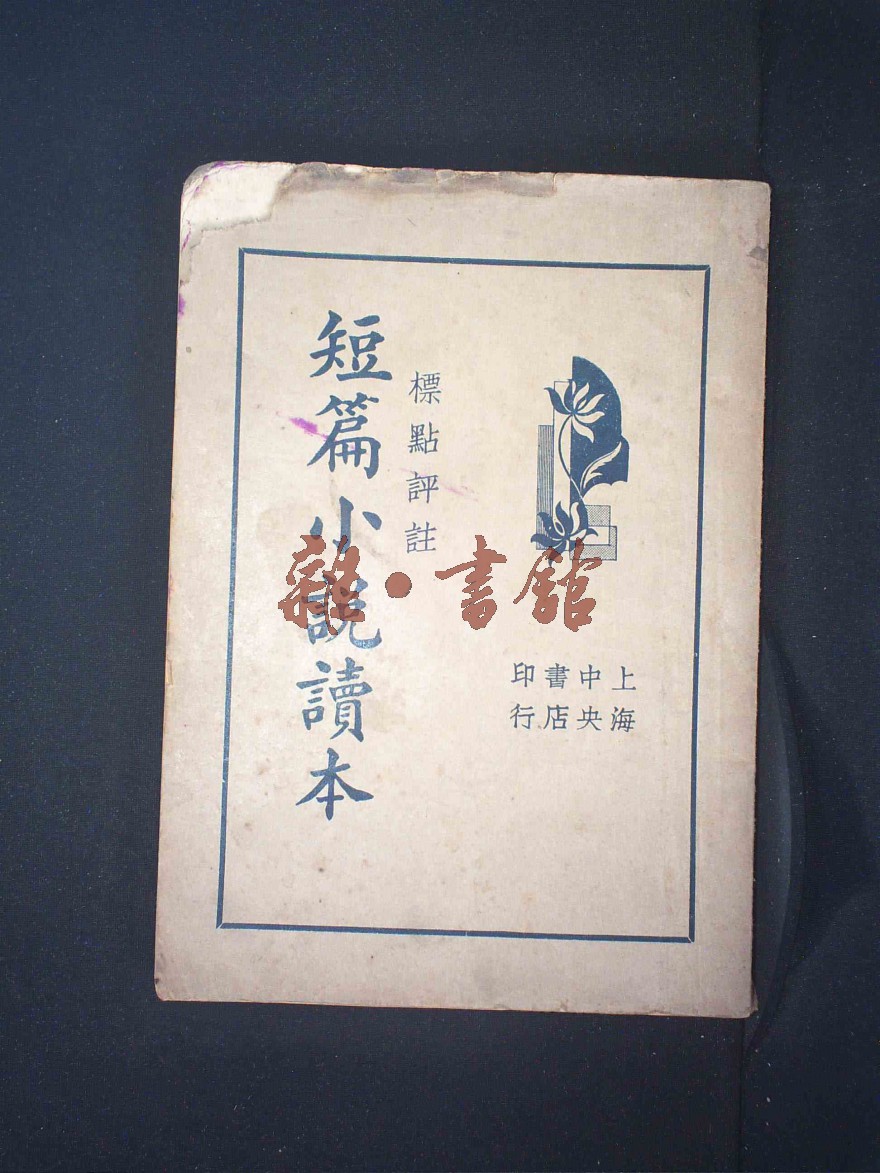 標點評註
短篇小說讀本
上海
中央
書店
印行
雜·書館